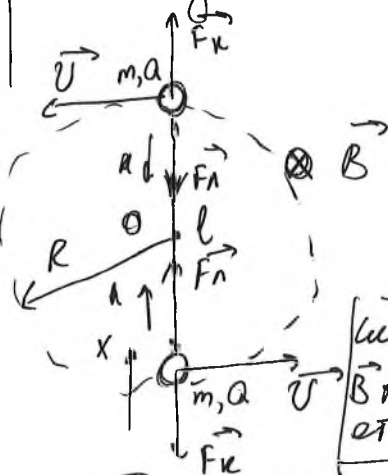 Fк
U m, Q
a Fл B
O l
R Fл
a
x
m, Q U
Fк
B